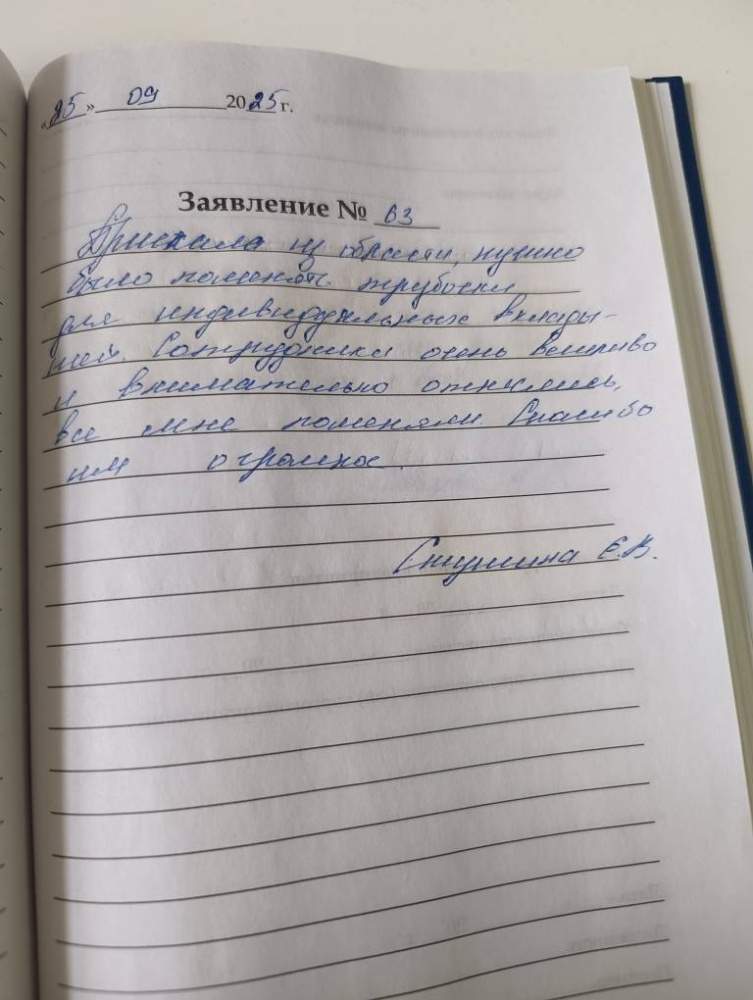 «25» 09 2025 г.
Заявление № 63
Приехала из области, нужно
было поменять трубочки
для индивидуальных вклады-
шей. Сотрудники очень вежливо
и внимательно отнеслись,
все мне поменяли. Спасибо
им огромное.
Е.В.